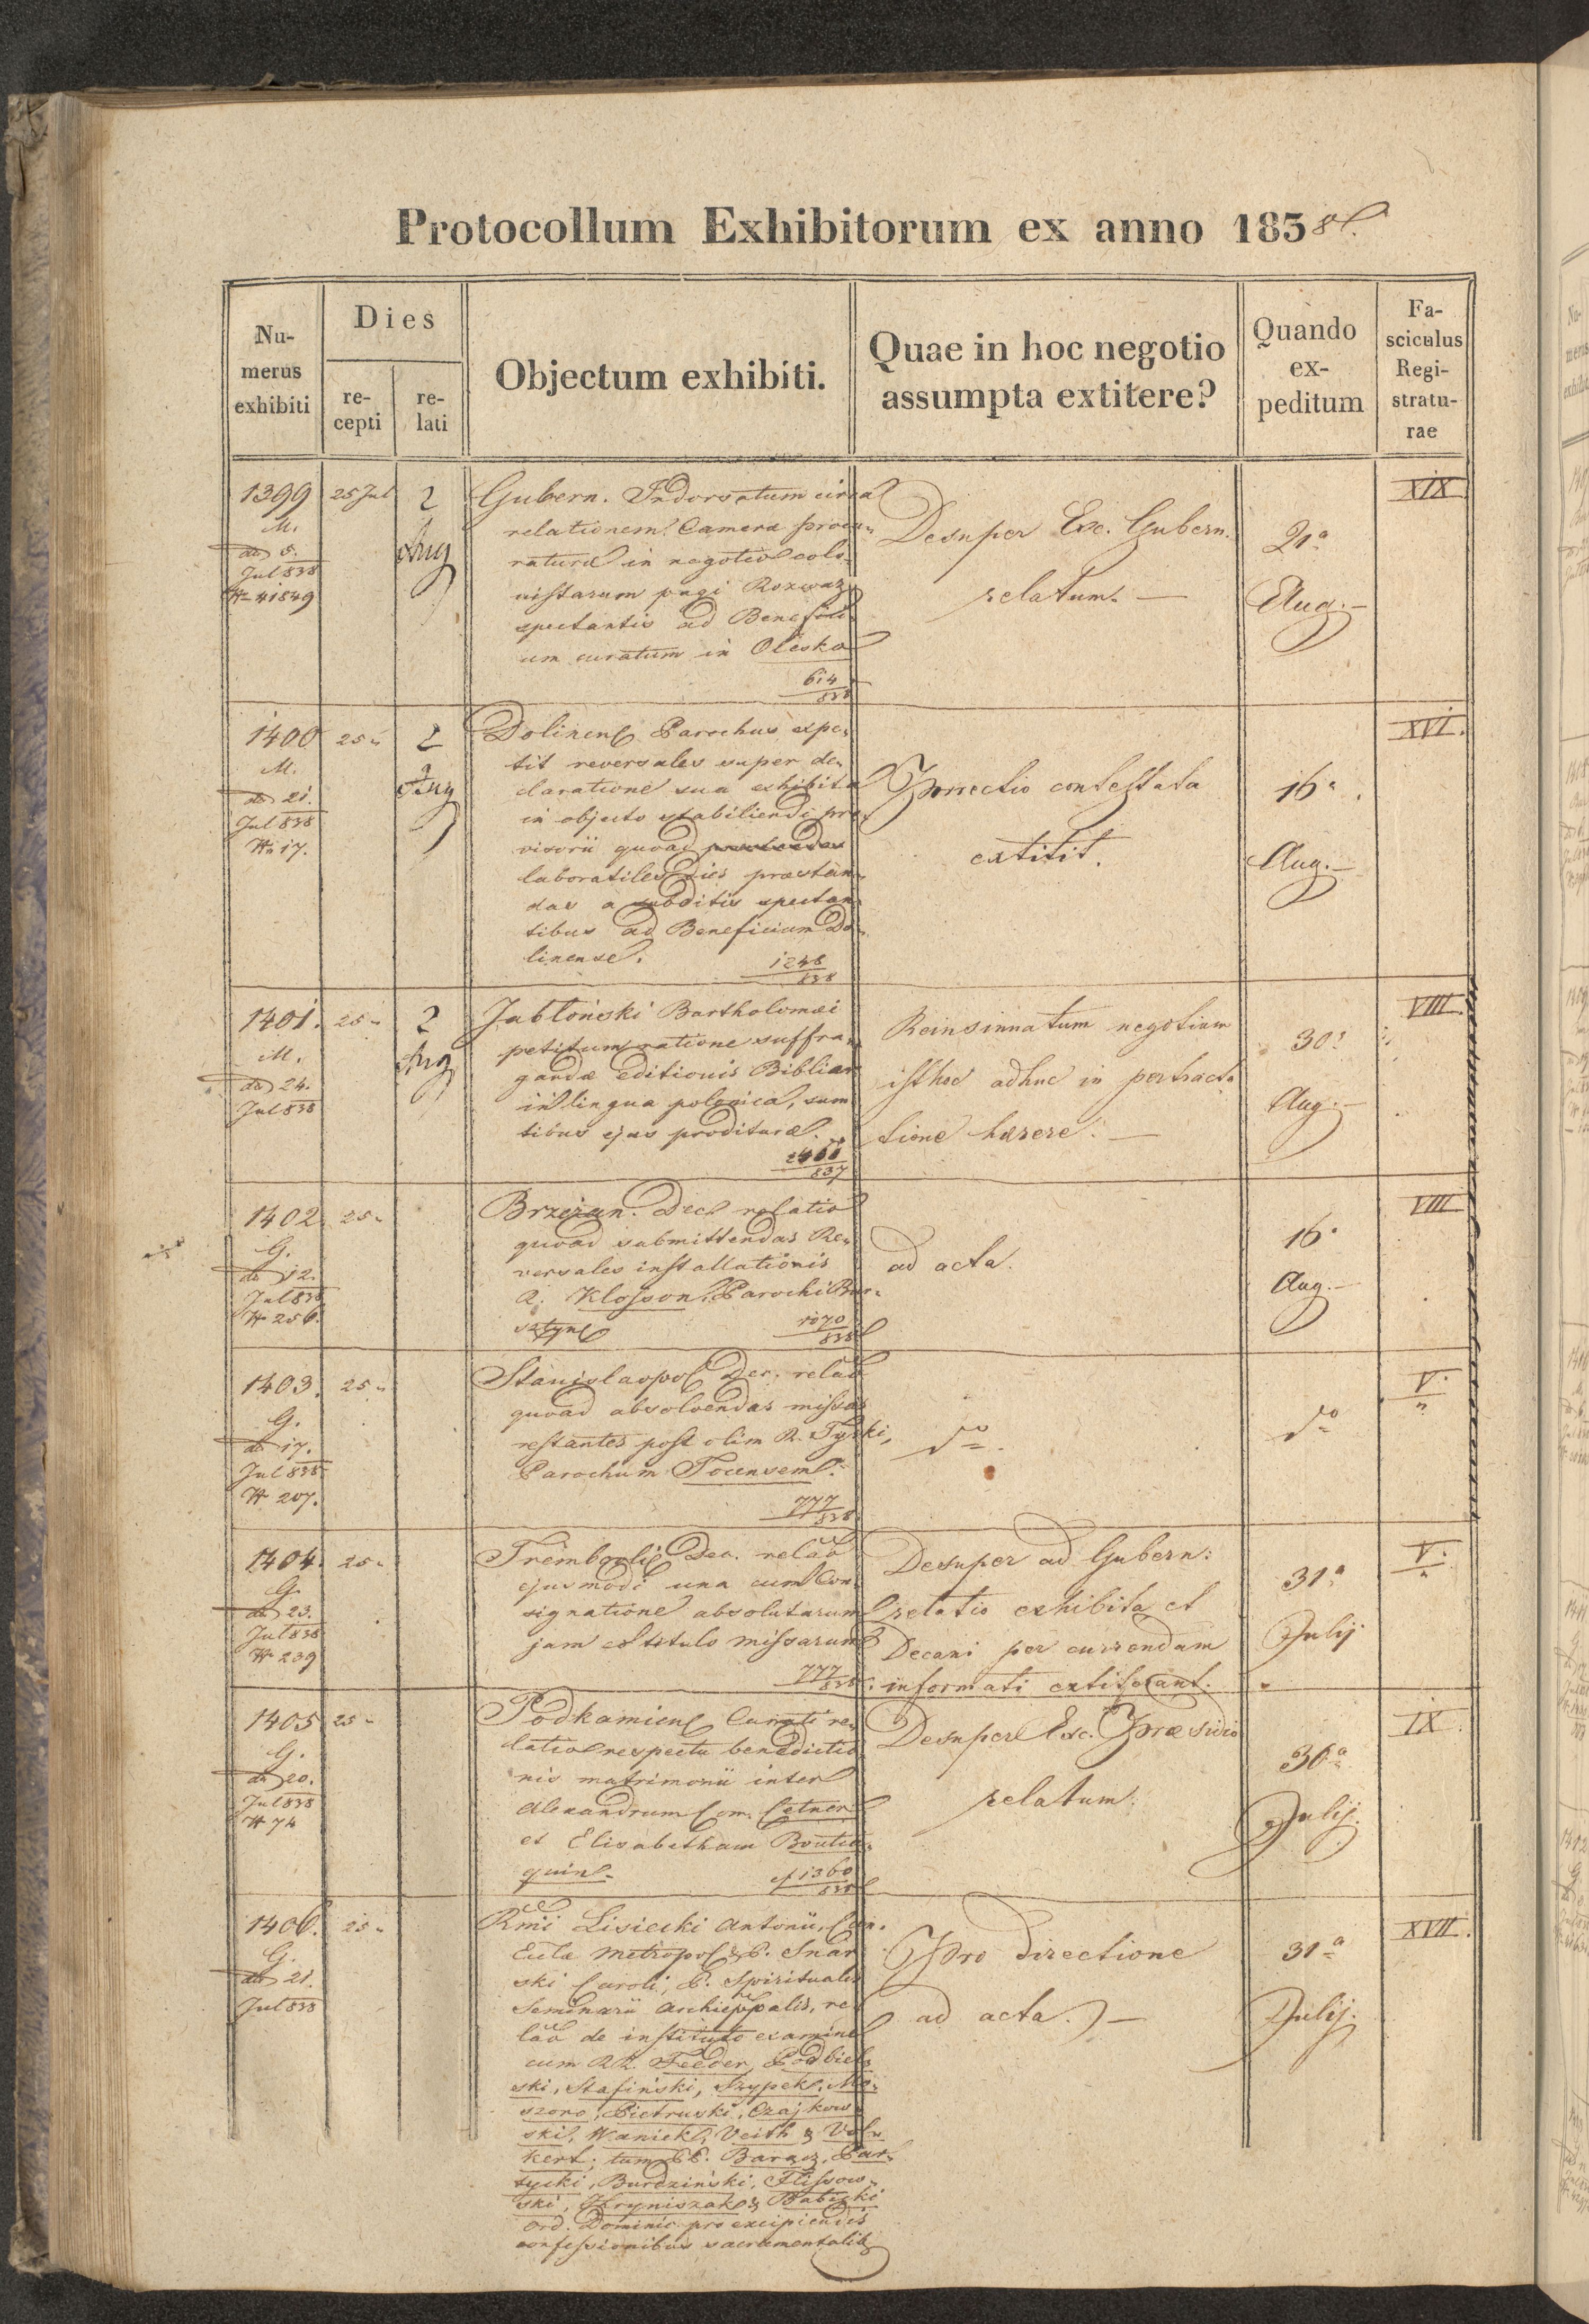 Protocollum Exhibitorum ex anno 1838.
Nu-
merus
exhibiti
Dies
re-
cepti
re-
lati
Objectum exhibiti.
Quae in hoc negotio
assumpta extitere?
Quando
ex-
peditum
Fa-
sciculus
Regi-
stratu-
rae
1399
M.
dd 5.
Jul 838
N 41849
25 Jul
2
Aug
Gubern. Indorsatum circa
relationem Cameræ procu-
raturæ in negotio colo-
nistarum pagi Rozwaz
spectantis ad Benefici-
um curatum in Olesko
614
838
Desuper Exc. Gubern.
relatum. —
21a
Aug. —
XIX
1400
M.
dd 21.
Jul 838
N 17.
25 "
2
Aug
Dolinens Parochus expe-
tit reversales super de-
claratione sua exhibita
in objecto stabiliendi pro-
visorii quoad
laboratiles dies præstan-
das a subditis spectan-
tibus ad Beneficium Do-
linense.
1248
838
Porrectio contestata
extitit.
16a
Aug. —
XVI.
1401.
M.
dd 24.
Jul 838
25 "
2
Aug
Jabłoński Bartholomæi
petitum ratione suffra-
gandæ editionis Bibliar
in lingua polonica, sum
tibus ejus proditura.
837
Reinsinuatum negotium
isthoc adhuc in pertracta
tione hærere. —
30a
Aug. —
VIII.
1402.
G.
dd 12.
Jul 838
N 256.
25 "
Brzeżan. Dec relatio
quoad submittendas Re-
versales installationis
R. Klosson, Parochi Bur-
sztyn
1070
838
ad acta.
16a
Aug. —
VIII
1403.
G.
dd 17.
Jul 838
N 207.
25 "
Stanislaopol Dec. relatio
quoad absolvendas missas
restantes post olim R. Tyski,
Parochum Tocensem.
777
838
do.
do
V.
1404.
G.
dd 23.
Jul 838
N 239
25 "
Trembovli Dec. relatio
ejusmodi una cum Con-
signatione absolutarum
jam ex titulo missarum
777
838
Desuper ad Gubern:
relatio exhibita et
Decani per currendam
informati extiterant.
31a
Julij
V.
1405
G.
dd 20.
Jul 838
N 74
25 "
Podkamien Curati re-
latio respectu benedictio
nis matrimonii inter
Alexandrum Com. Cetner
et Elisabetham Boutio-
quin.
ad 1360
838
Desuper Exc. Præsidio
relatum.
30a
Julij.
IX.
1406.
G.
dd 21.
Jul 838
25 "
Rmi Lisiecki Antonii, Can.
Eccłæ Metropol & P. Snar
ski Caroli, P. Spiritualis
Seminarii Archieppalis, re-
latio de instituto examine
cum RR. Feeder, Podbiel-
ski, Stafiński, Szypek, Mo-
szoro, Pietruski, Czajkow-
ski, Waniek, Veith & Vol-
kert; tum PP. Baracz, Par-
tycki, Burdziński, Flissow-
ski, Hryniszak & Babicki
Ord. Dominic. pro excipiendis
confessionibus sacramentalib
Pro directione
ad acta. —
31a
Julij.
XVII.